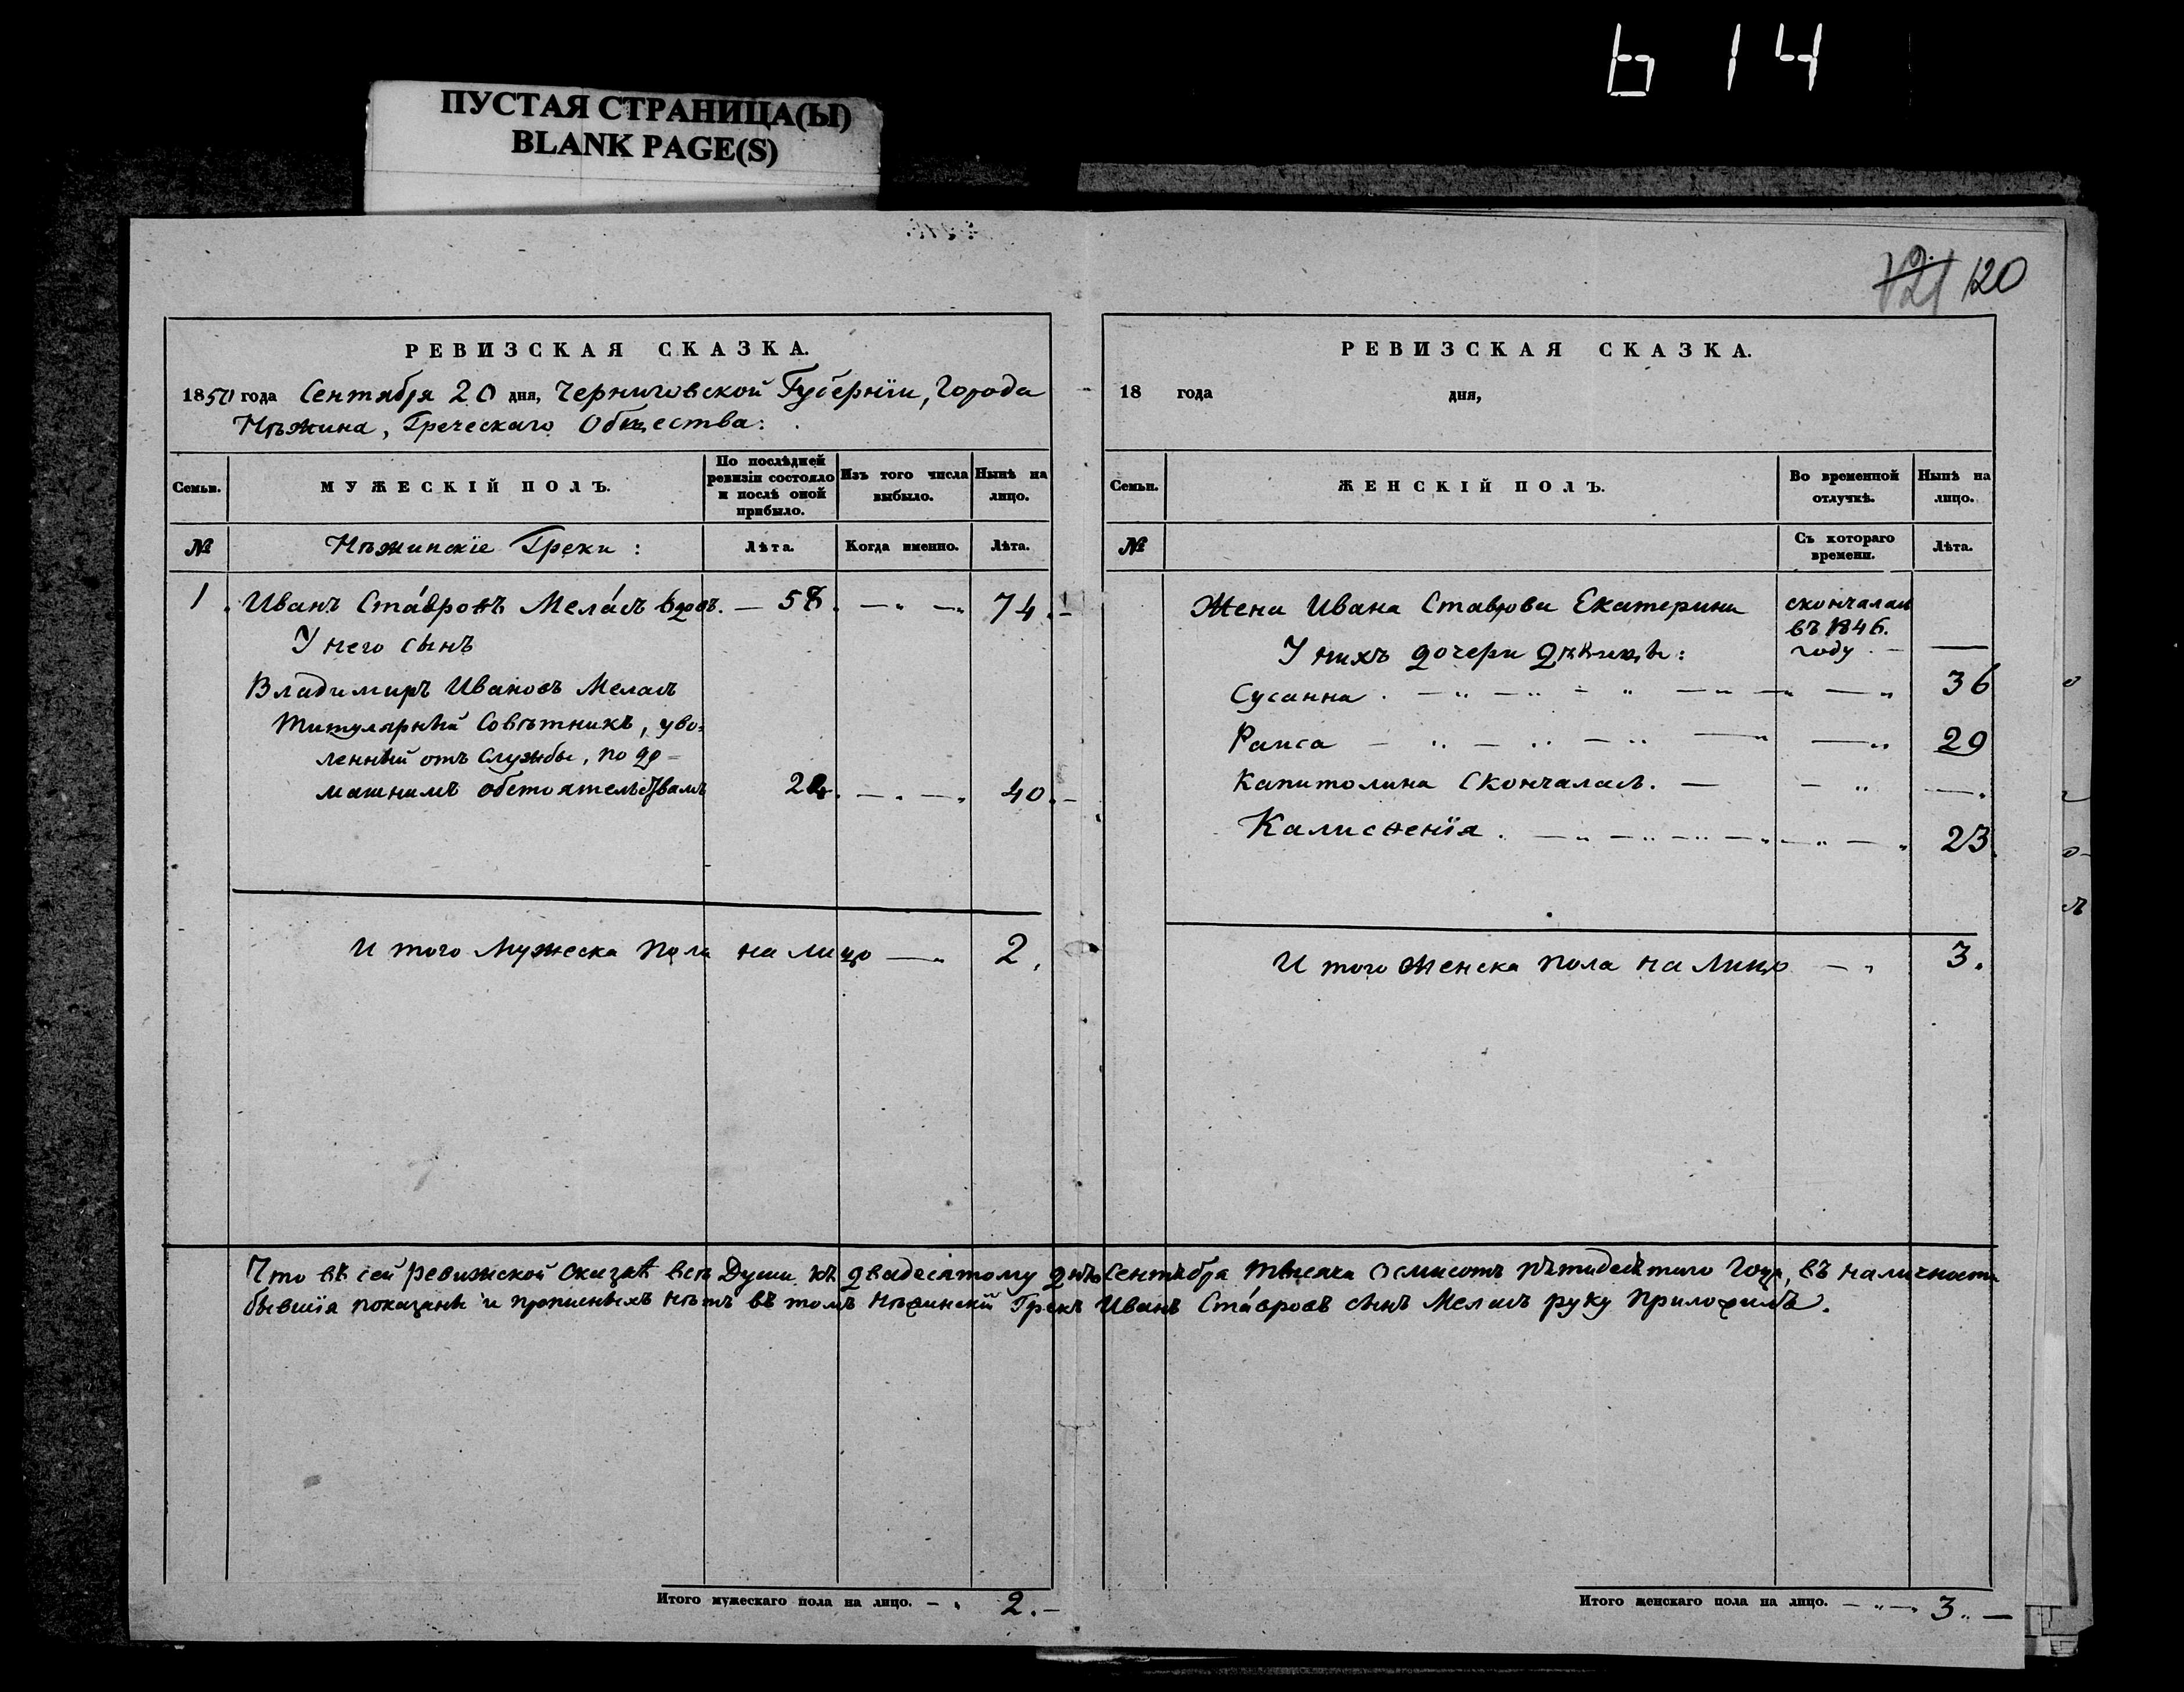 614
ПУСТАЯ СТРАНИЦА(Ы)
BLANK PAGE(S)
121 120
РЕВИЗСКАЯ СКАЗКА.
1850 года Сентября 20 дня, Черниговской Губернїи, Города
Нѣжина, Греческаго Общества:
Семьи.
МУЖЕСКІЙ ПОЛЪ.
По послѣдней ревизіи состояло и послѣ оной прибыло.
Изъ того числа выбыло.
Нынѣ на лицо.
№
Нѣжинскїе Греки:
Лѣта.
Когда именно.
Лѣта.
1. Иванъ Ста́вровъ Мела́съ вдовъ. — 58. — 74.
У него сынъ
Владимиръ Ивановъ Меласъ
Титулярный Совѣтникъ, уво=
ленный отъ Службы, по до=
машнимъ обстоятельствамъ 24. — 40.
И того Мужеска пола на лицо — 2.
РЕВИЗСКАЯ СКАЗКА.
18 года дня,
Семьи.
ЖЕНСКІЙ ПОЛЪ.
Во временной отлучкѣ.
Нынѣ на лицо.
№
Съ котораго времени.
Лѣта.
Жена Ивана Ставрова Екатерина скончалась
въ 1846.
году —
У нихъ дочери дѣвицы:
Сусанна. — 36
Раиса — 29
Капитолина Скончалась. —
Калисѳенїя. — 23.
И того Женска пола на Лицо — 3.
Что въ сей ревижской сказкѣ всѣ Души къ двадесятому дню Сентября тысяча осмисотъ пѣтидесѣтаго года, въ наличности
бывшїя показаны и прописныхъ нѣтъ въ томъ Нѣжинскїй Грекъ Иванъ Ста́вровъ сынъ Меласъ руку приложилъ.
Итого мужескаго пола на лицо. — 2. —
Итого женскаго пола на лицо. — 3. —